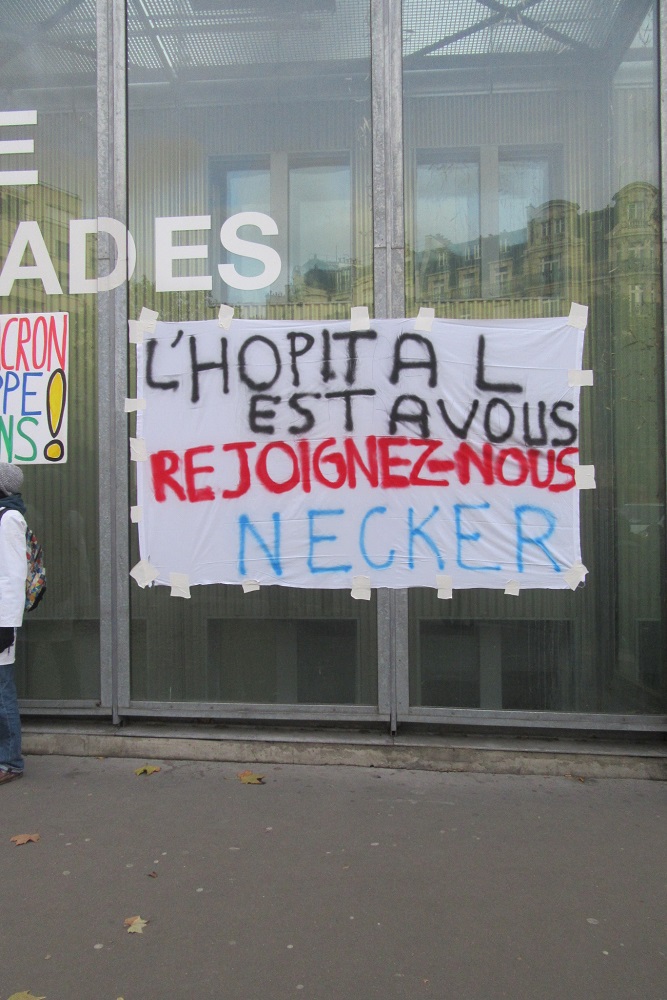 E
ADES
L'HOPITAL
EST A VOUS
REJOIGNEZ-NOUS
NECKER
CRON
PPE
NS!